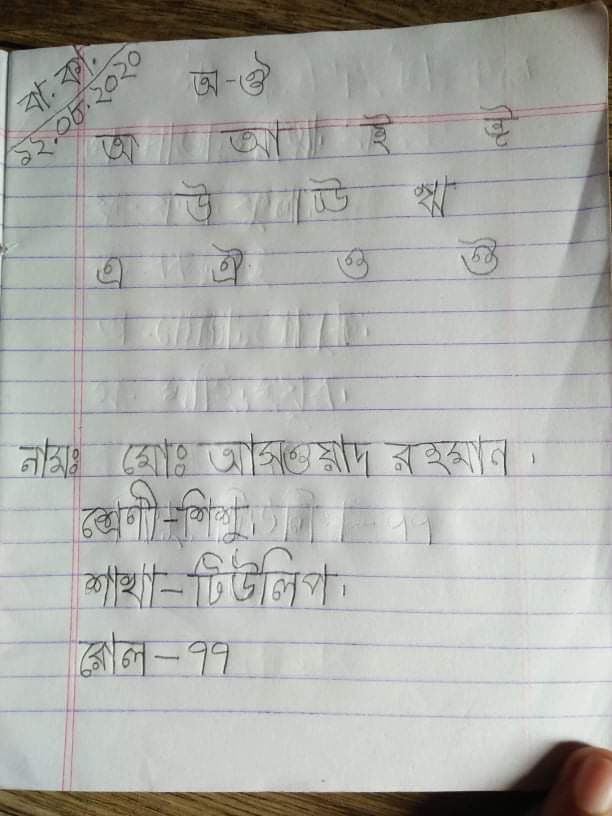 বা. কা.
১২.০৫.2020
অ-ঔ
অ আ ই ঈ
উ ঊ ঋ
এ ঐ ও ঔ
নামঃ মোঃ আসওয়াদ রহমান.
শ্রেণী-শিশু.
শাখা-টিউলিপ.
রোল-৭৭